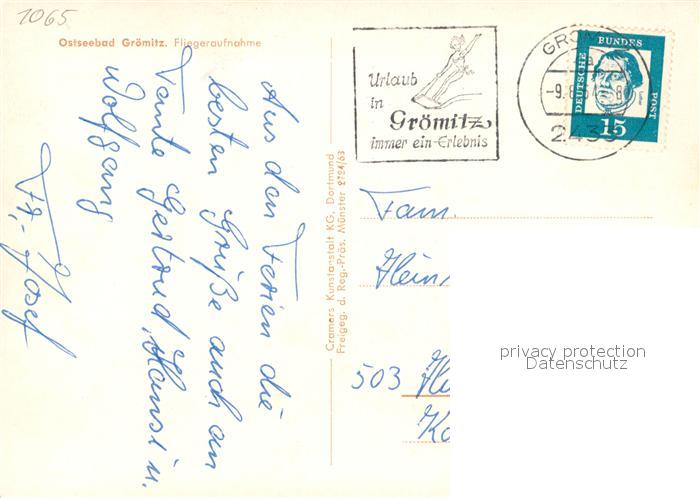 1065
Ostseebad Grömitz. Fliegeraufnahme
Aus den Ferien die
besten Grüße auch an
Tante Gertrud, Hansi u.
Wolfgang
Fr.-Josef
Cramers Kunstanstalt KG. Dortmund
Freigeg. d. Reg.-Präs. Münster 2724/63
Urlaub
in
Grömitz
immer ein Erlebnis
DEUTSCHE
BUNDES
POST
15
Fam.
503
privacy protection
Datenschutz